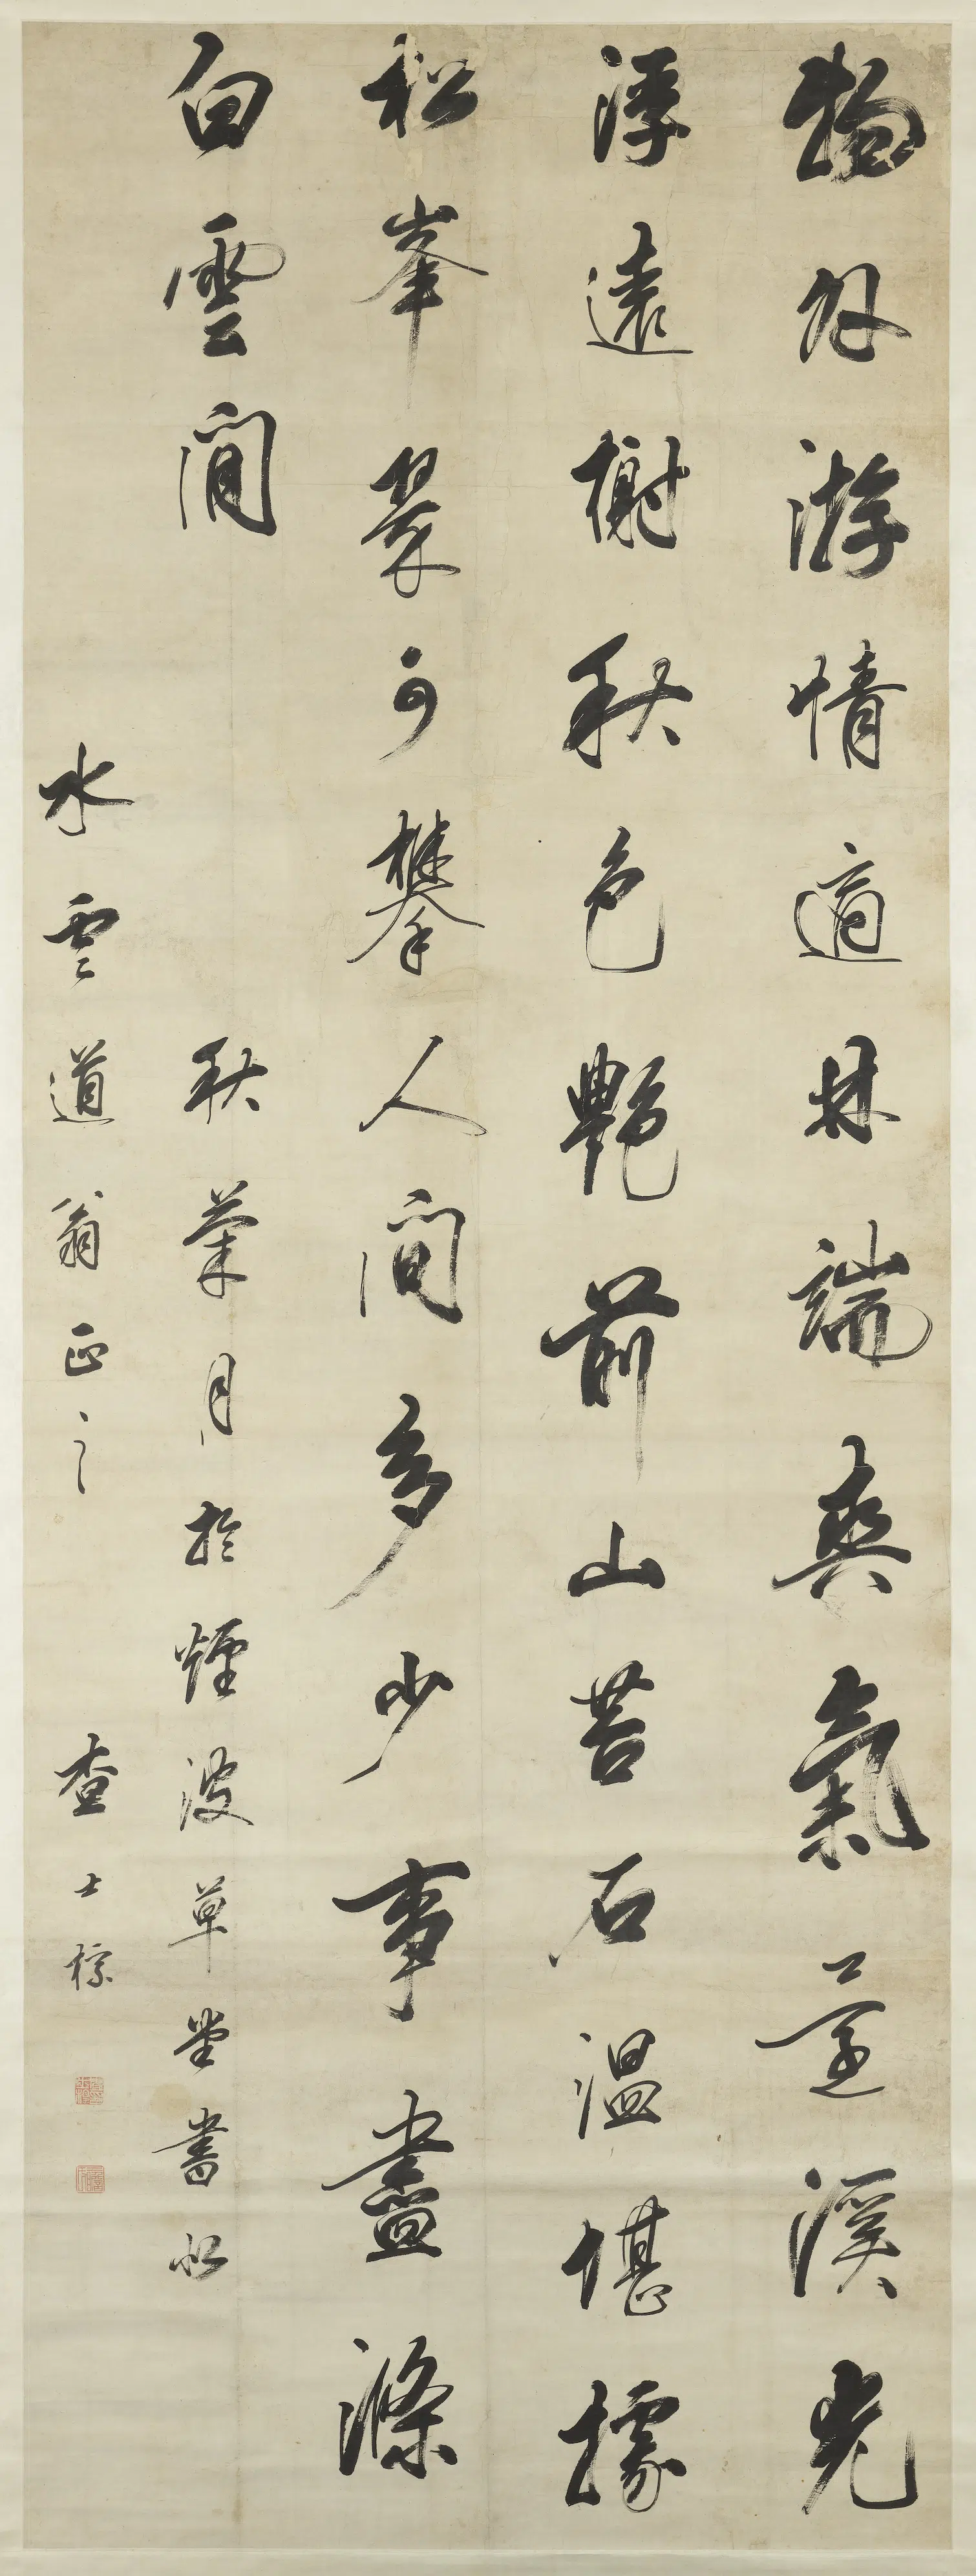 物外游情適林端爽氣還溪光
浮遠榭秋色艷前山苔石溫堪據
松峯翠可攀人間多少事盡滌
白雲間
秋菊月於煙波草堂書似
水雲道翁正之 查士標